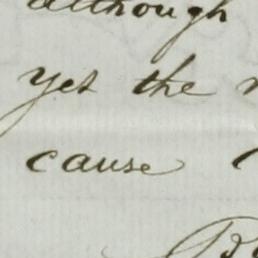 although
yet the
cause